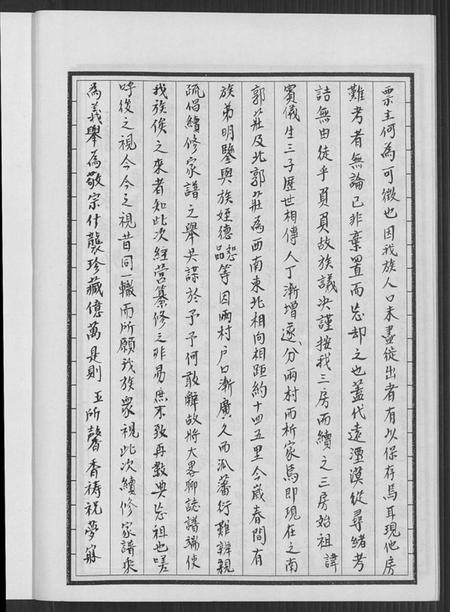 票主何為可徵也因我族人口未盡從出者有以保存馬耳現他房
難考者無論已非棄置而忘却之也蓋代遠湮漠從尋緒考
詰無由徒乎員員故族議決謹按我三房而續之三房始祖諱
賓儀生三子歷世相傳人丁漸增遂分兩村而析家馬即現在之南
郭莊及北郭莊為西南東北相向相距約十四五里今歲春間有
族弟明鑒與族姪德恕品等因兩村戶口漸廣久而瓜蕃衍難辨親
疏倡續修家譜之舉吳謀於予予何敢辭故將大畧聊誌譜端使
我族俟之來者知此次經營纂修之非易庶不致再數典忘祖也嗟
呼後之視今今之視昔同一轍而所願我族眾視此次續修家譜來
為義舉為敬宗什襲珍藏億萬是則 玉所馨香祷祝夢寐